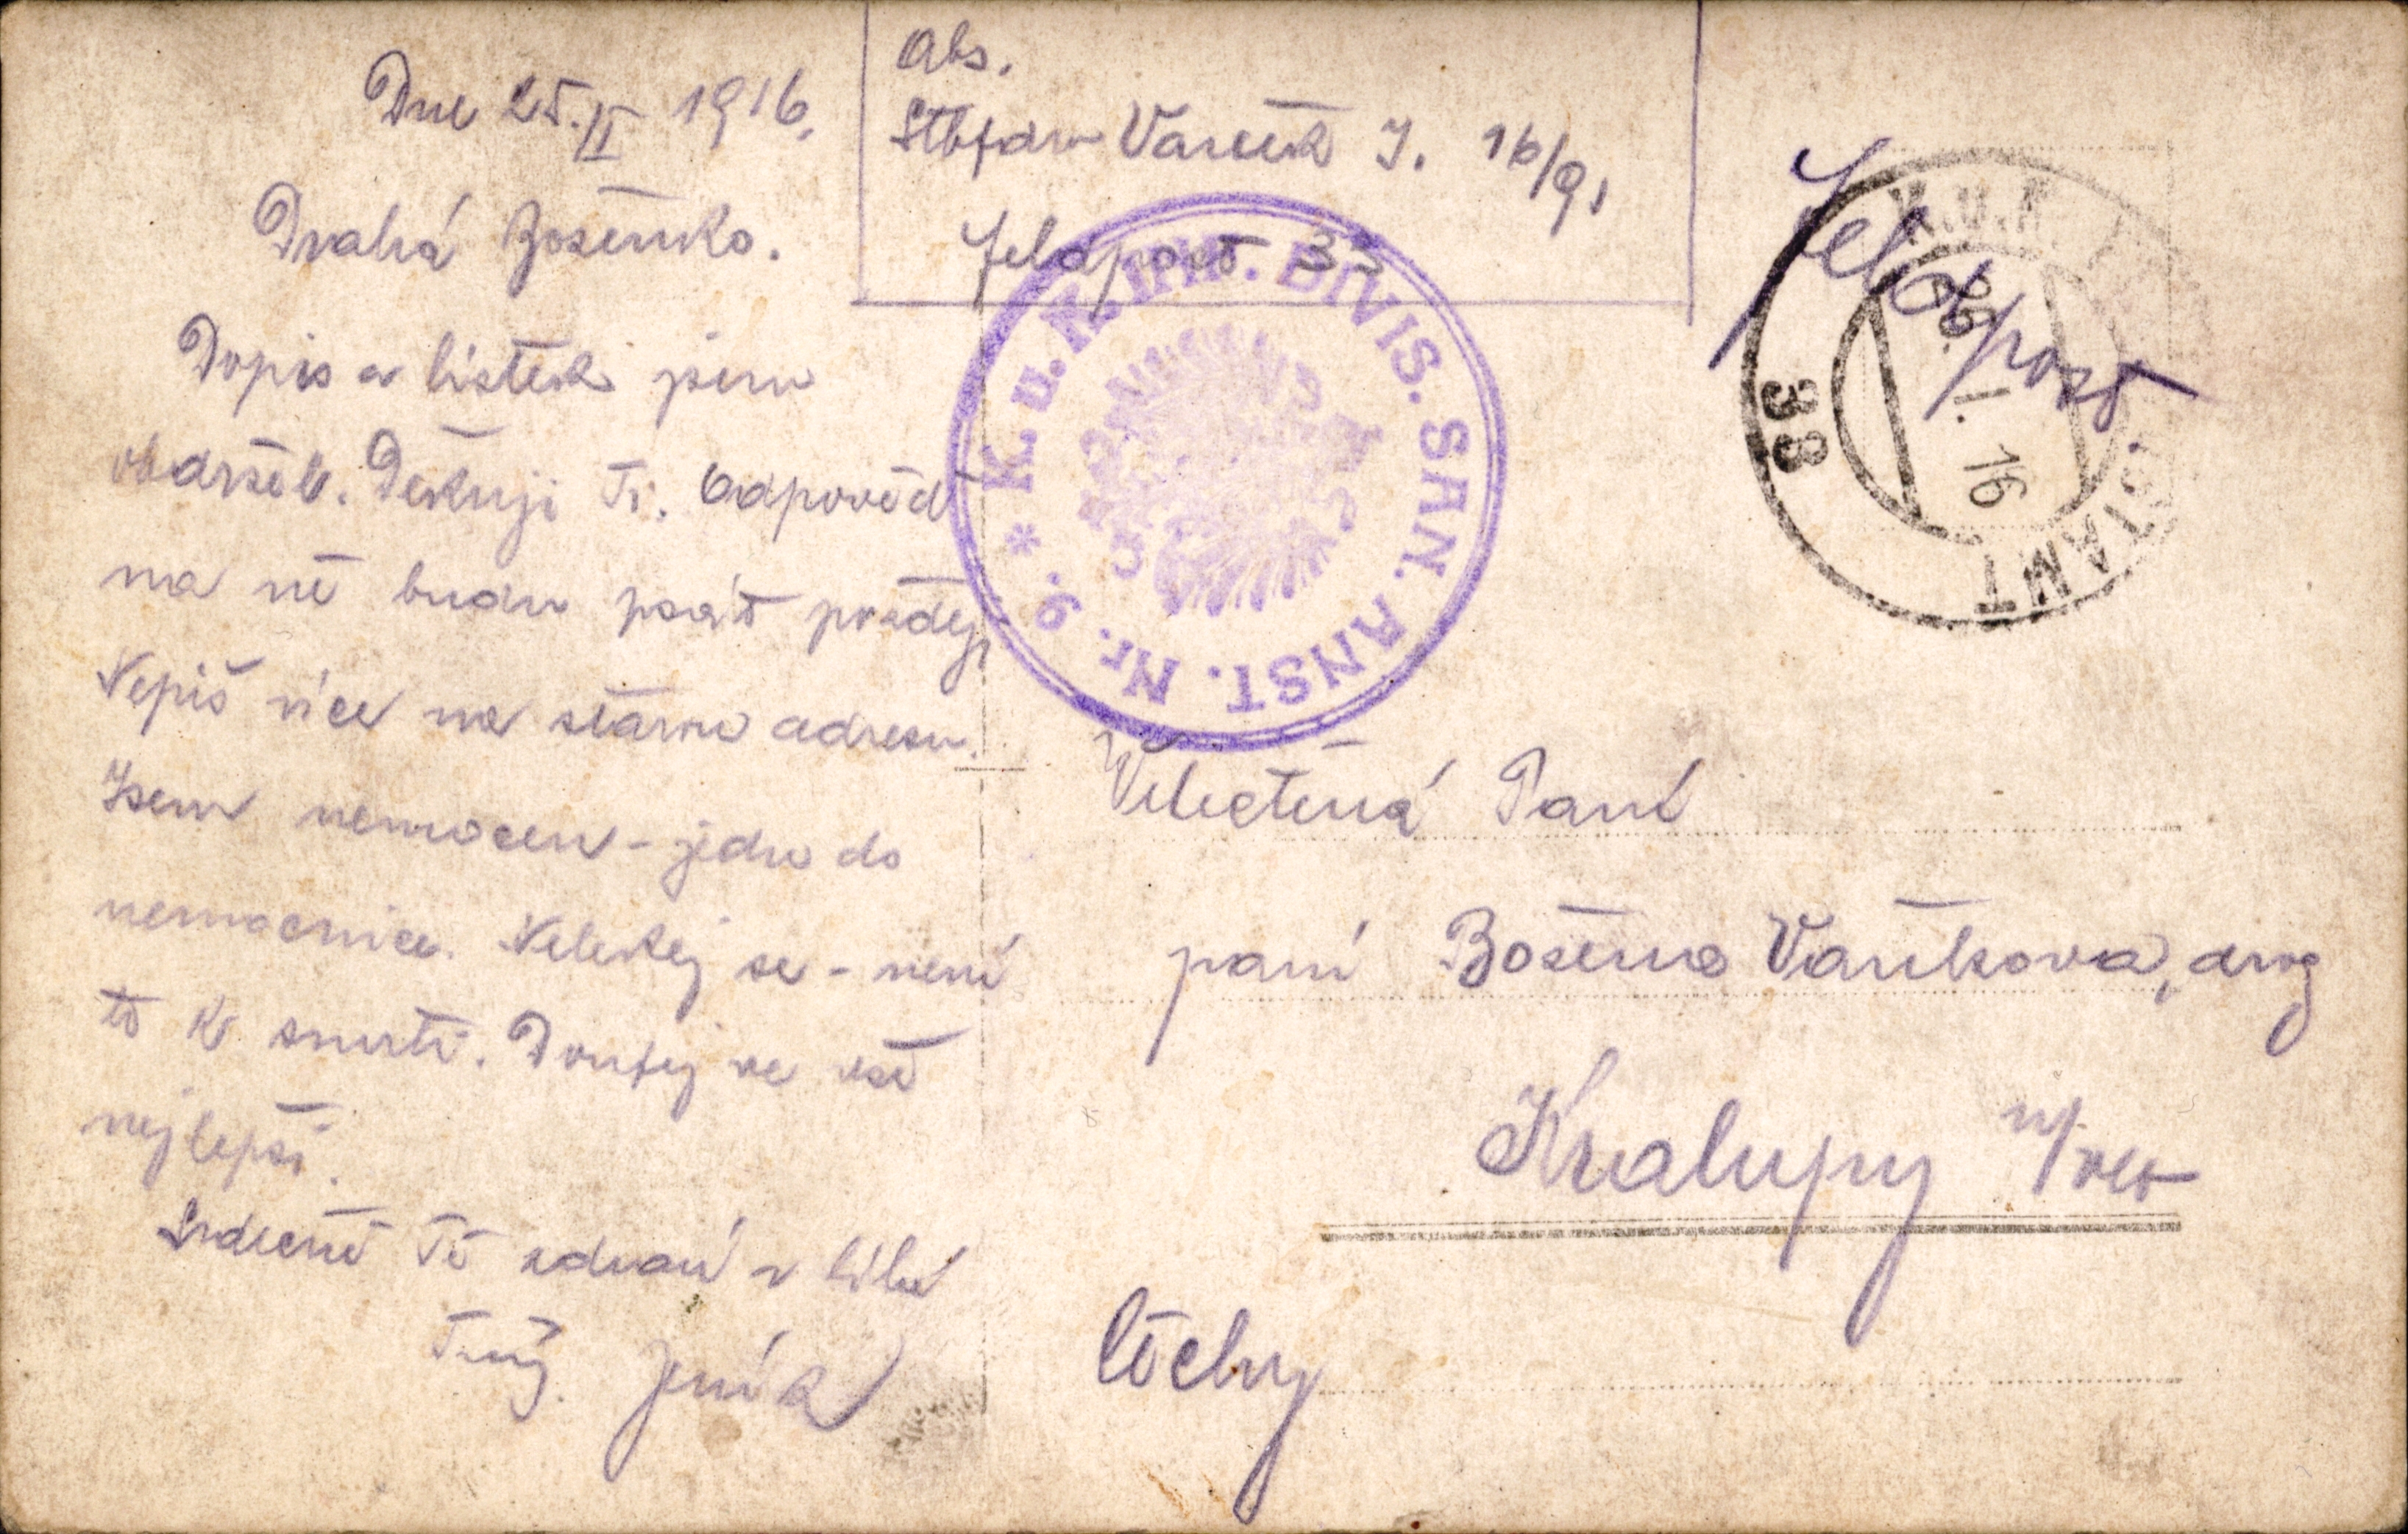 Dne 25. II 1916.
Drahá Boženko.
Dopis a lístek jsem
obdržel. Děkuji Ti. Odpověď
na ně budu psát později
Nepiš více na starou adresu.
Jsem nemocen - jedu do
nemocnice. Nelekej se - není
to k smrti. Doufej ve vše
nejlepší.
Srdečně Tě zdraví a líbá
Tvůj Jeník
Abs.
Stbfdw J. 16/91
Feldpost 33
K. u. K. INF. DIVIS. SAN. ANST. Nr. 9. *
Feldpost
K.u.K. 
38
26. I. 16
Velectěná Paní
paní Božena Vaňkova, drog
Kralupy n/Vlt
Čechy